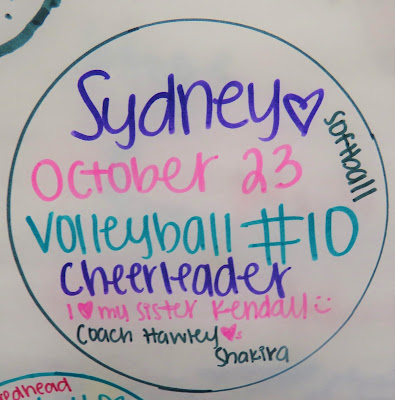 Sydney♡
softball
October 23
Volleyball #10
Cheerleader
I ♥ my sister Kendall :)
Coach Hawley ♥s
Shakira
redhead